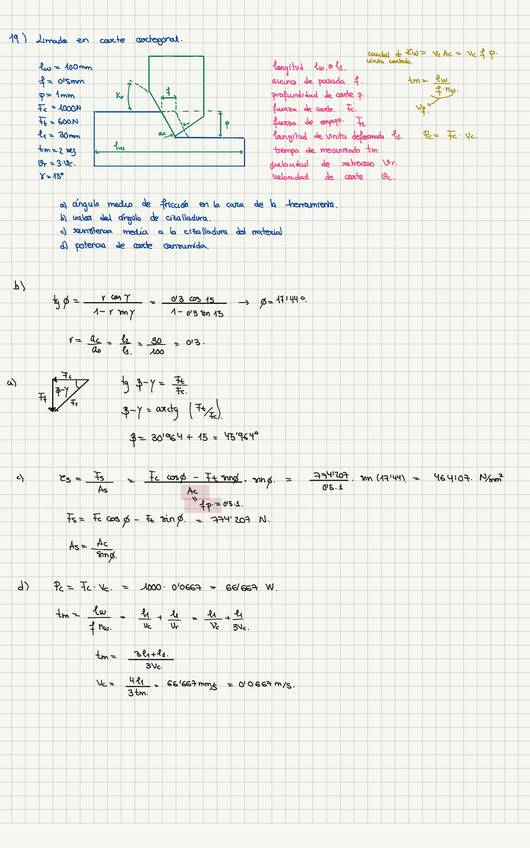 19) Limado en corte ortogonal.
caudal de viruta cortada. Zw = vc Ac = vc f p.
lw = 100mm
f = 0'5mm
p = 1mm
Fc = 1000N
Ft = 600N
l1 = 30mm
tm = 2 seg
vr = 3·vc.
γ = 15°
Kr
f
p
ac
lw
longitud lw o l1.
avance de pasada f.
profundidad de corte p.
fuerza de corte. Fc
fuerza de empuje. Ft
longitud de viruta deformada l1.
tiempo de mecanizado tm
velocidad de retroceso vr.
velocidad de corte vc.
tm = lw / f nw.
vf.
Pc = Fc · vc.
a) ángulo medio de fricción en la cara de la herramienta.
b) valor del ángulo de cizalladura.
c) resistencia media a la cizalladura del material
d) potencia de corte consumida
b)
tg ϕ = r cos γ / 1 - r sin γ = 0'3 cos 15 / 1 - 0'3 sin 15 → ϕ = 17'44°.
r = ac / a0 = l2 / l1 = 30 / 100 = 0'3.
a)
Fc
Ft
β-γ
Fr
tg β-γ = Ft / Fc.
β-γ = arctg (Ft/Fc)
β = 30'964 + 15 = 45'964°
c) τs = Fs / As = Fc cosϕ - Ft sinϕ / Ac · sinϕ = 774'207 / 0'5·1 sin (17'44) = 464'107. N/mm²
" f p. = 0'5·1.
Fs = Fc cos ϕ - Ft sin ϕ. = 774'207 N.
As = Ac / sinϕ.
d) Pc = Fc · vc. = 1000 · 0'0667 = 66'667 W.
tm = lw / f nw. = l1 / vc + l1 / vr = l1 / vc + l1 / 3vc.
tm = 3l1 + l1. / 3vc.
vc = 4l1 / 3tm. = 66'667 mm/s = 0'0667 m/s.